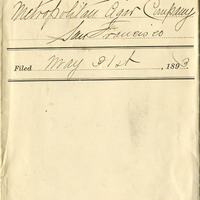 Metropolitan Cigar Company
San Francisco
Filed May 31st, 1893